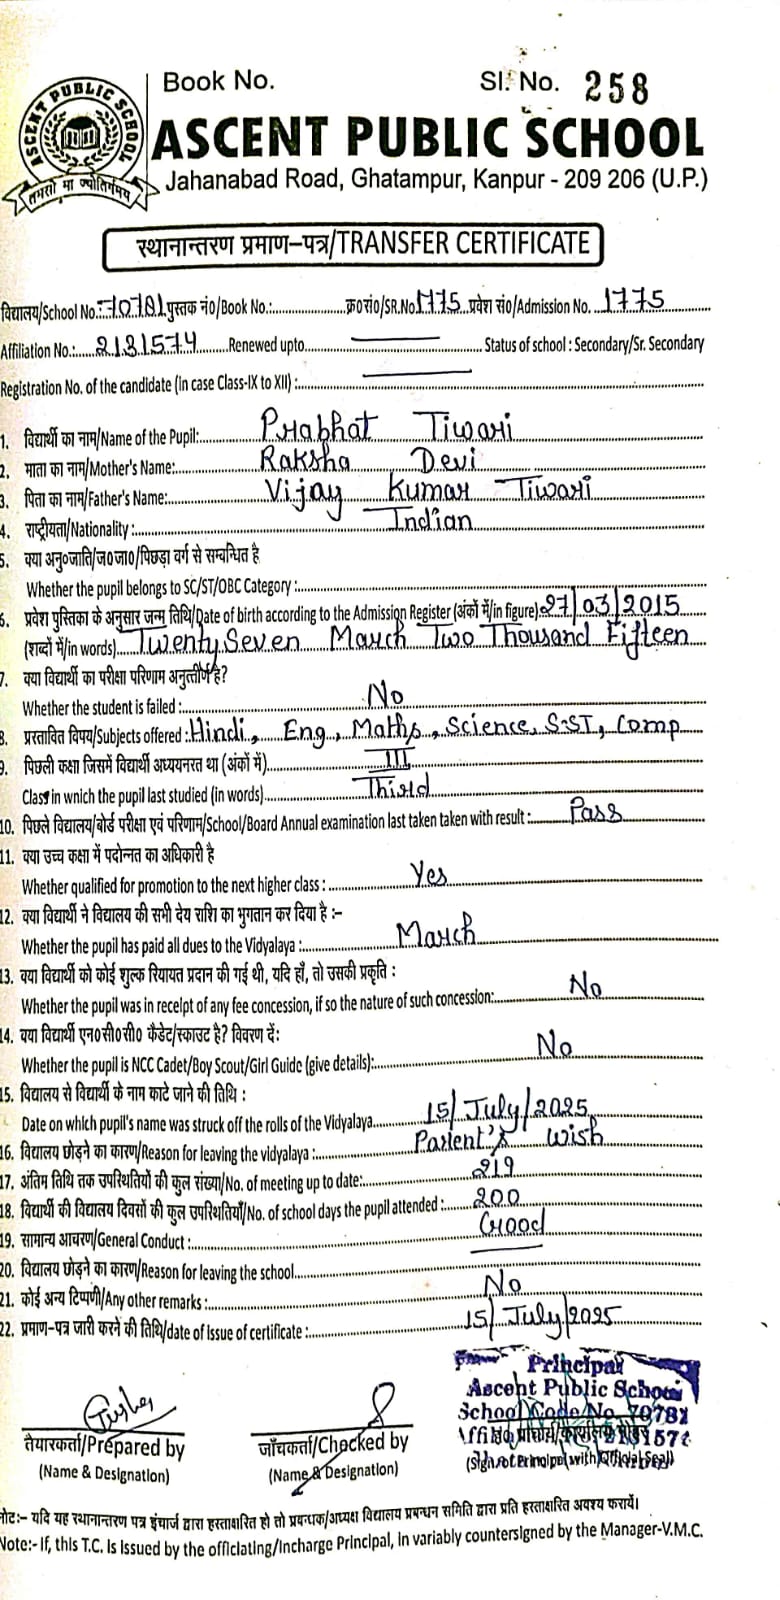 ASCENT PUBLIC SCHOOL
तमसो मा ज्योतिर्गमय
Book No. Sl. No. 258
ASCENT PUBLIC SCHOOL
Jahanabad Road, Ghatampur, Kanpur - 209 206 (U.P.)
स्थानान्तरण प्रमाण–पत्र/TRANSFER CERTIFICATE
विद्यालय/School No.: 70781 पुस्तक नं0/Book No.: क्र0सं0/SR.No. 1775 प्रवेश सं0/Admission No. 1775
Affiliation No.: 2131574 Renewed upto Status of school : Secondary/Sr. Secondary
Registration No. of the candidate (in case Class-IX to XII) :
1. विद्यार्थी का नाम/Name of the Pupil: Prabhat Tiwari
2. माता का नाम/Mother's Name: Raksha Devi
3. पिता का नाम/Father's Name: Vijay Kumar Tiwari
4. राष्ट्रीयता/Nationality : Indian
5. क्या अनु०जाति/ज०जा०/पिछड़ा वर्ग से सम्बन्धित है
Whether the pupil belongs to SC/ST/OBC Category :
6. प्रवेश पुस्तिका के अनुसार जन्म तिथि/Date of birth according to the Admission Register (अंकों में/in figure) 27/03/2015
(शब्दों में/in words) Twenty Seven March Two Thousand Fifteen
7. क्या विद्यार्थी का परीक्षा परिणाम अनुत्तीर्ण है?
Whether the student is failed : No
8. प्रस्तावित विषय/Subjects offered : Hindi, Eng, Maths, Science, S.ST, Comp
9. पिछली कक्षा जिसमें विद्यार्थी अध्ययनरत था (अंकों में) III
Class in which the pupil last studied (in words) Third
10. पिछले विद्यालय/बोर्ड परीक्षा एवं परिणाम/School/Board Annual examination last taken taken with result : Pass
11. क्या उच्च कक्षा में पदोन्नत का अधिकारी है
Whether qualified for promotion to the next higher class : Yes
12. क्या विद्यार्थी ने विद्यालय की सभी देय राशि का भुगतान कर दिया है :–
Whether the pupil has paid all dues to the Vidyalaya : March
13. क्या विद्यार्थी को कोई शुल्क रियायत प्रदान की गई थी, यदि हाँ, तो उसकी प्रकृति :
Whether the pupil was in receipt of any fee concession, if so the nature of such concession: No
14. क्या विद्यार्थी एन०सी०सी० कैडेट/स्काउट है? विवरण दें:
Whether the pupil is NCC Cadet/Boy Scout/Girl Guide (give details): No
15. विद्यालय से विद्यार्थी के नाम काटे जाने की तिथि :
Date on which pupil's name was struck off the rolls of the Vidyalaya 15/July/2025
16. विद्यालय छोड़ने का कारण/Reason for leaving the vidyalaya : Parent's Wish
17. अंतिम तिथि तक उपस्थितियों की कुल संख्या/No. of meeting up to date: 219
18. विद्यार्थी की विद्यालय दिवसों की कुल उपस्थितियाँ/No. of school days the pupil attended : 200
19. सामान्य आचरण/General Conduct : Good
20. विद्यालय छोड़ने का कारण/Reason for leaving the school
21. कोई अन्य टिप्पणी/Any other remarks : No
22. प्रमाण-पत्र जारी करने की तिथि/date of Issue of certificate : 15/July/2025
Principal
Ascent Public School
School Code No. 70781
तैयारकर्ता/Prepared by
(Name & Designation)
जाँचकर्ता/Checked by
(Name & Designation)
(Sign. of Principal with Official Seal)
नोट:– यदि यह स्थानान्तरण पत्र इंचार्ज द्वारा हस्ताक्षरित हो तो प्रबन्धक/अध्यक्ष विद्यालय प्रबन्धन समिति द्वारा प्रति हस्ताक्षरित अवश्य करायें।
Note:- If, this T.C. is issued by the officiating/Incharge Principal, in variably countersigned by the Manager-V.M.C.